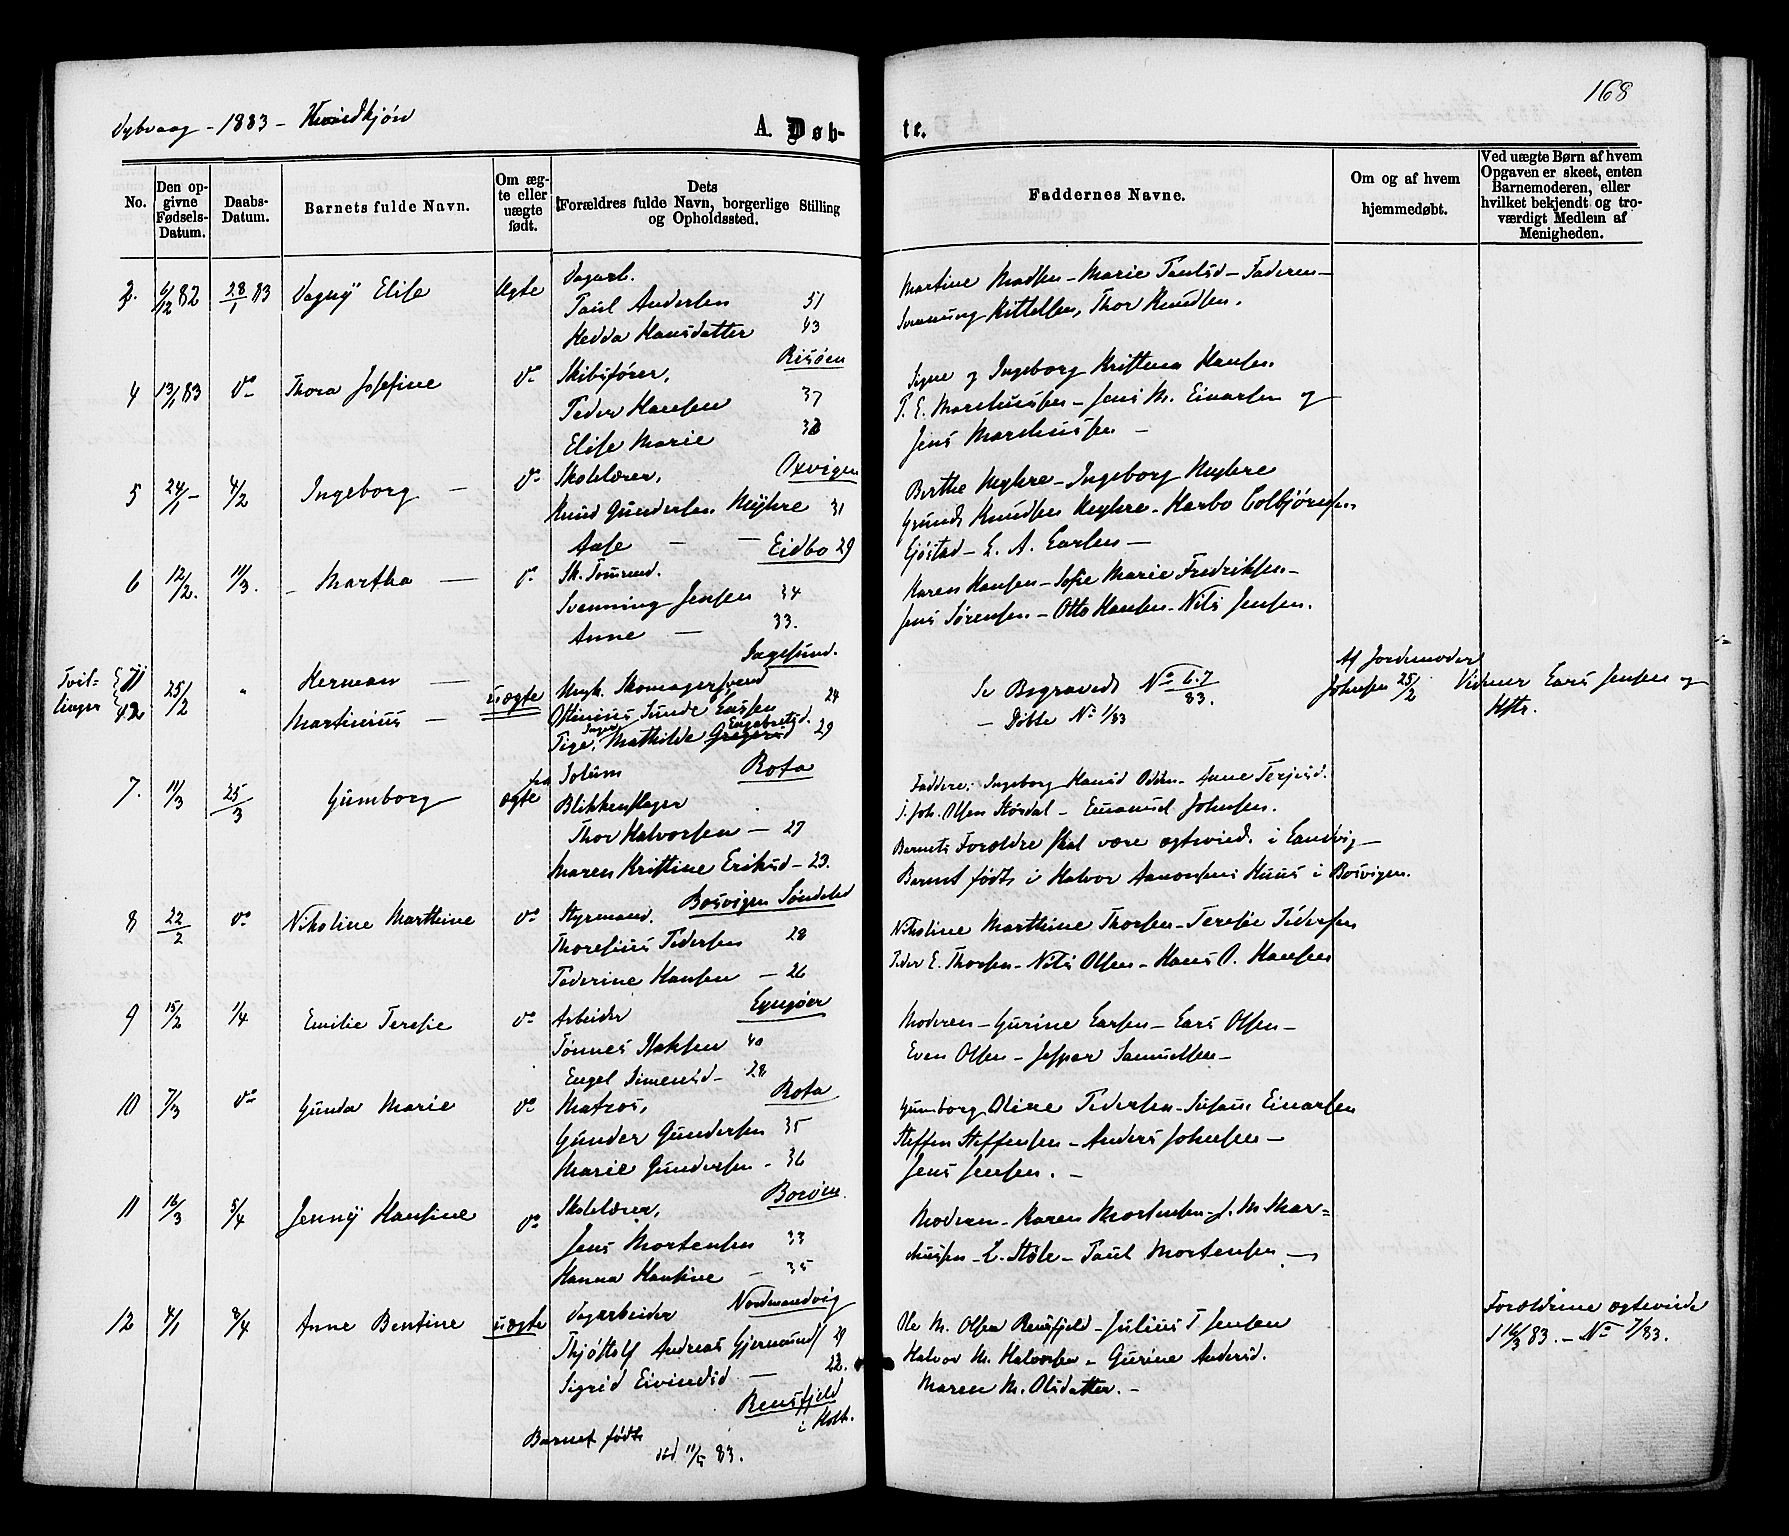 168
Dybvaag - 1883 - Kvindkjøn
A. Døb-
te.
No.
Den opgivne Fødsels-Datum.
Daabs-Datum.
Barnets fulde Navn.
Om ægte eller uægte født.
Dets Forældres fulde Navn, borgerlige Stilling og Opholdssted.
Faddernes Navne.
Om og af hvem hjemmedøbt.
Ved uægte Børn af hvem Opgaven er skeet, enten Barnemoderen, eller hvilket bekjendt og troværdigt Medlem af Menigheden.
6/12 82 28/1 83 Dagny Elise Ægte Dagarb.
Paul Andersen 51
Hedda Hansdatter 43
Risøen
Martine Madsen - Marie Paulsd - Faderen -
Kittelsen, Thor Knudsen.
4 13/1 83 do Thora Josefine do Skibsfører,
Peder Hansen 37
Elise Marie
Oxvigen
Signe og Ingeborg Kristina Hansen.
P. E. Marchussen - Jens M. Einarsen og
Jens Marchussen -
5 24/1 - 4/2 Ingeborg - do Skolelærer,
Knud Gundersen Myhre 31
Aase - - Eidbo 29
Berthe Myhre - Ingeborg Myhre
Knudsen Myhre - Colbjørnsen
- L. A. Larsen -
6 12/2. 11/3. - Martha - do Sk. Tømrmd.
Svenning Jensen 34
Anne - 33.
Sagesund.
Karen Hansen - Sofie Marie Fredriksen -
Jens Sørensen - Otto Hansen - Nils Jensen.
Tvil-
linger
25/2 " Herman -
Martinius - uægte
Ungk. Skomagersvend
Ottinius Sunde Enssen 24
Pige, Inger Mathilde Engebretsd. 29
Rota
Se Begravede No 6.7/83.
- Døbte No 1/83
Af Jordemoder
Johnsen 25/2
Vidner Lars Jensen og
Hstr.
7. 11/3 25/3 Gumborg ægte fra Solum
Blikkenslager
Thor Halvorsen - 27
Maren Kristine Eriksd - 23.
Bosvigen Søndeled
Faddere: Ingeborg Hansd - Anne Terjesd.
Joh. Olsen Størdal - Emanuel Johnsen.
Barnets Forældre skal være ægteviede i Landvig -
Barnet født i Halvor Aanonsens Huus i Bosvigen.
8 22/2 do Nikoline Marthine do Styrmand.
Thoresius Pedersen 28
Pederine Hansen - 26
Lyngøer
Nikoline Marthine Thorsen - Teresie Pedersen
Peder E. Thorsen - Nils Olsen - Hans O. Hansen
9 15/2 1/4 Emilie Teresie do Arbeider
Tønnes Isaksen 40
Engel Simensd - 28
Rota
Moderen - Gurine Larsen - Lars Olsen -
Even Olsen - Jesper Samuelsen -
10 7/3 do Gunda Marie do Matros,
Gunder Gundersen 35
Marie Gundersen - 36
Borøen.
Gumborg Oline Pedersen - Susane Einarsen
Steffen Steffensen - Anders Johnsen -
Jens Jensen. -
11 16/3 5/4 Jenny Hansine do Skolelærer,
Jens Mortensen 33
Hanna Hansine - 35
Nordmandvig
Moderen - Karen Mortensen - J. M. Mar=
chussen - L. Støle - Paul Mortensen -
12 4/1 8/4 Anne Bentine uægte Dagarbeider
Thjøstolf Andreas Gjermund 29
Sigrid Eivindsd - 22.
Rensfjeld
i Holt.
Barnet født
død 83.
Ole M. Olsen Rensfjeld - Julius T Jensen
Halvor M. Halvorsen - Gurine Andersd.
Maren M. Olsdatter. -
Forældrene ægteviede
d 16/3 83. - No 7/83.